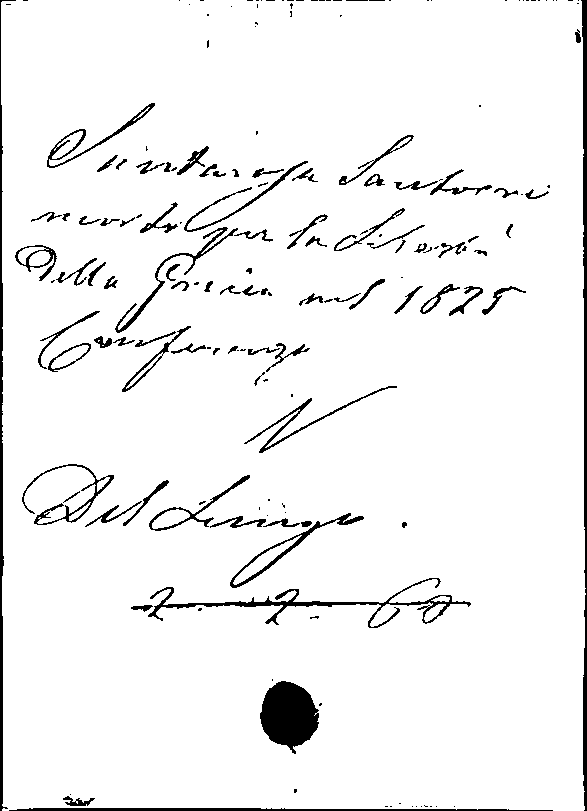 Santarosa Santorre
morto per la Libertà
Della Grecia nel 1825
Conferenza
N
Del Lungo.
2. 2. 60